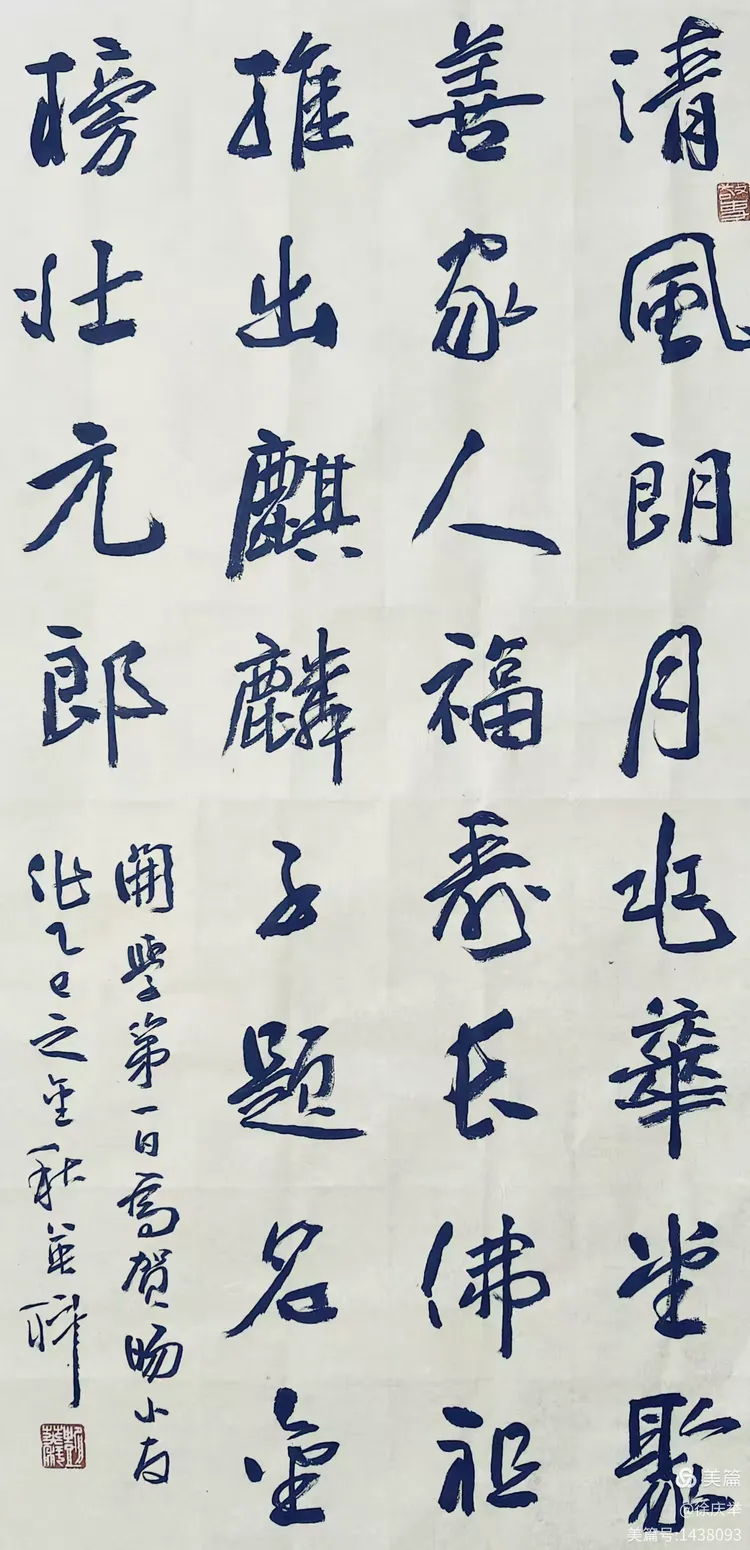 清風朗月華堂聚
善家人福寿長佛祖
推出麒麟子題名金
榜壮元郎
開學第一日為賀暘小友
作乙巳之金秋
美篇
@徐庆举
美篇号:1438093